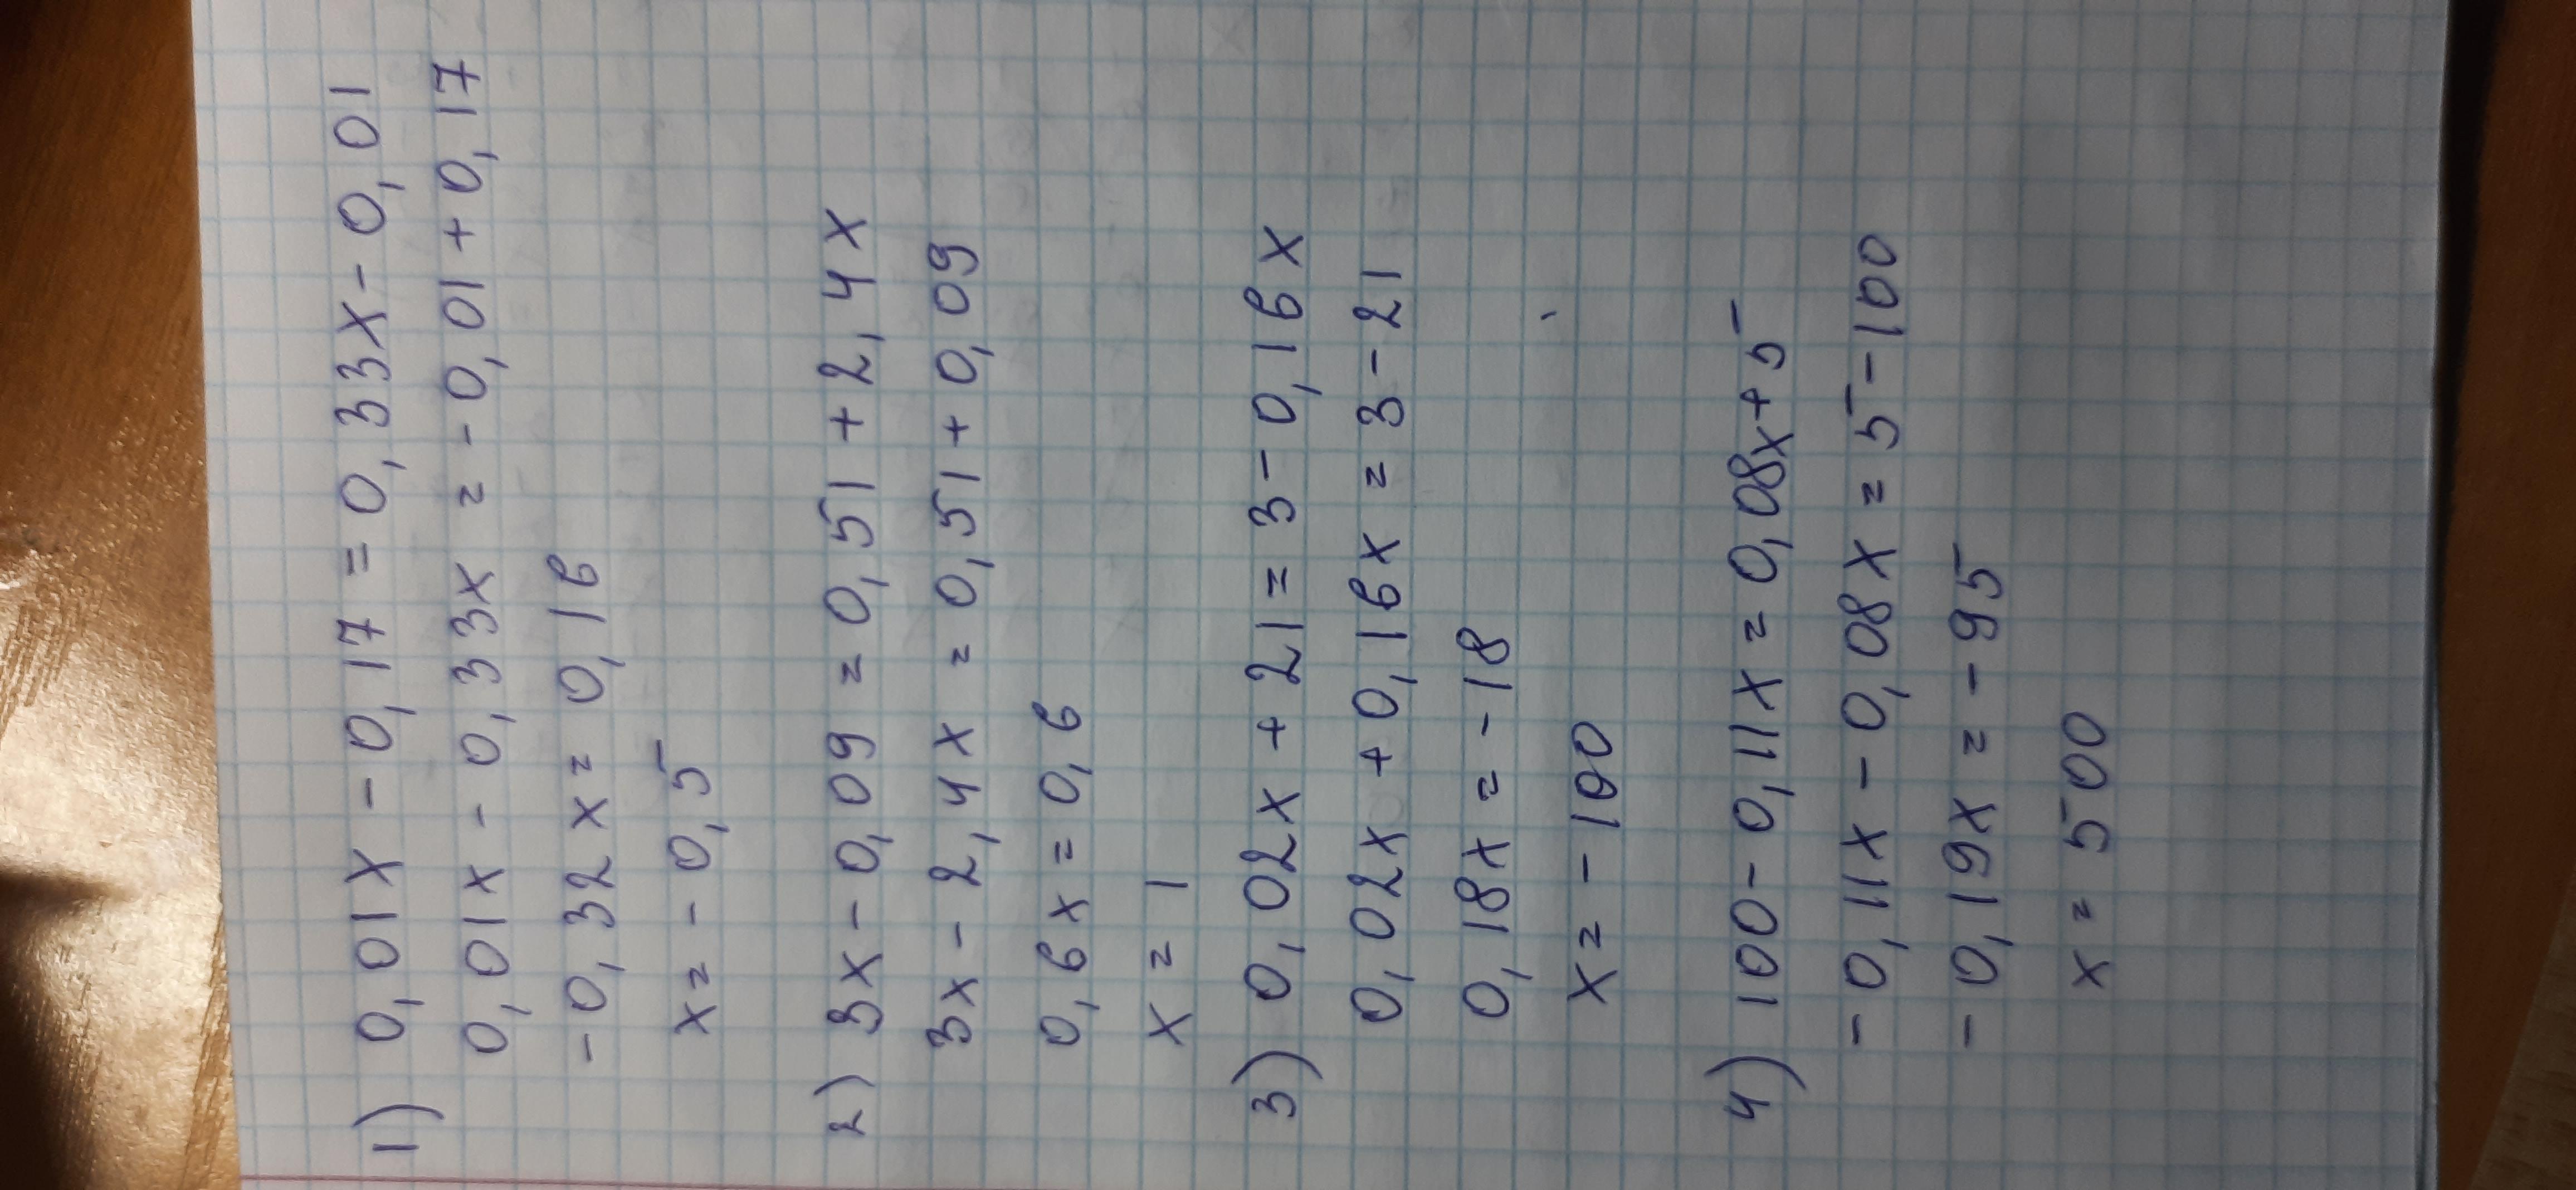 1) 0,01x - 0,17 = 0,33x - 0,01
0,01x - 0,33x = -0,01 + 0,17
-0,32x = 0,16
x = -0,5
2) 3x - 0,09 = 0,51 + 2,4x
3x - 2,4x = 0,51 + 0,09
0,6x = 0,6
x = 1
3) 0,02x + 21 = 3 - 0,16x
0,02x + 0,16x = 3 - 21
0,18x = -18
x = -100
4) 100 - 0,11x = 0,08x + 5
-0,11x - 0,08x = 5 - 100
-0,19x = -95
x = 500